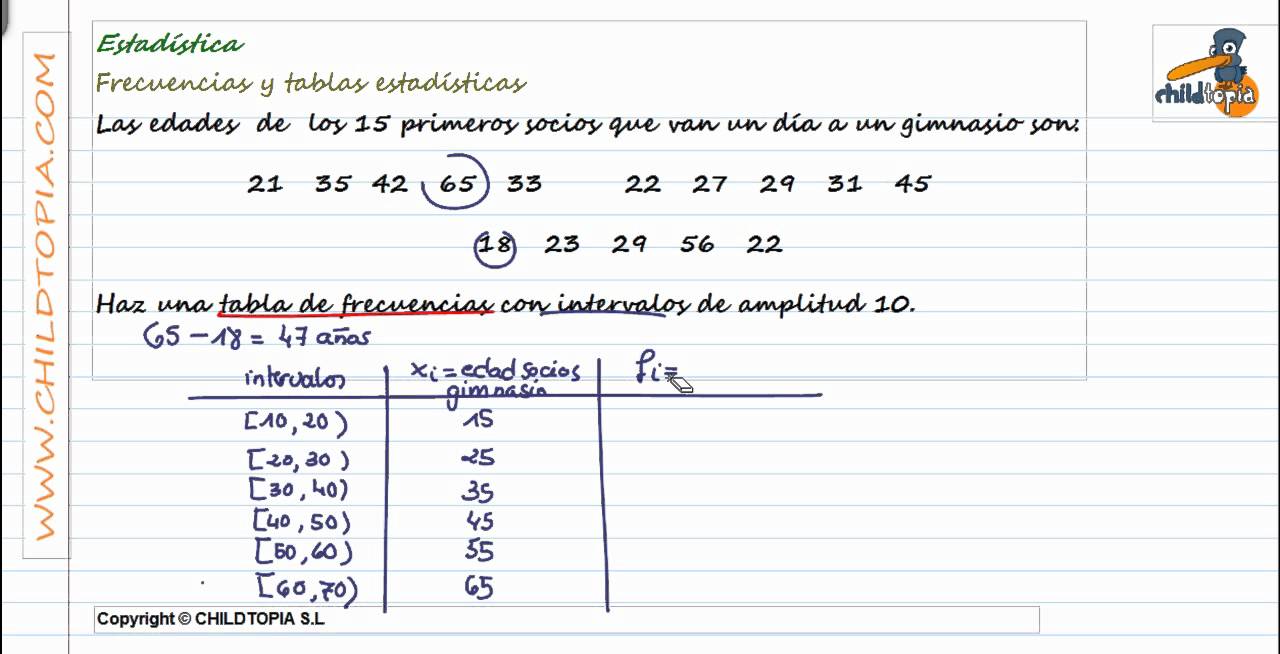 WWW.CHILDTOPIA.COM
Estadística
Frecuencias y tablas estadísticas
childtopia
Las edades de los 15 primeros socios que van un día a un gimnasio son:
21 35 42 65 33 22 27 29 31 45
18 23 29 56 22
Haz una tabla de frecuencias con intervalos de amplitud 10.
65 - 18 = 47 años
intervalos xi = edad socios gimnasio fi =
[10, 20) 15
[20, 30) 25
[30, 40) 35
[40, 50) 45
[50, 60) 55
[60, 70) 65
Copyright © CHILDTOPIA S.L